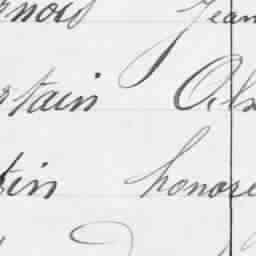 rnois Jean
rtain Ols
tin honore